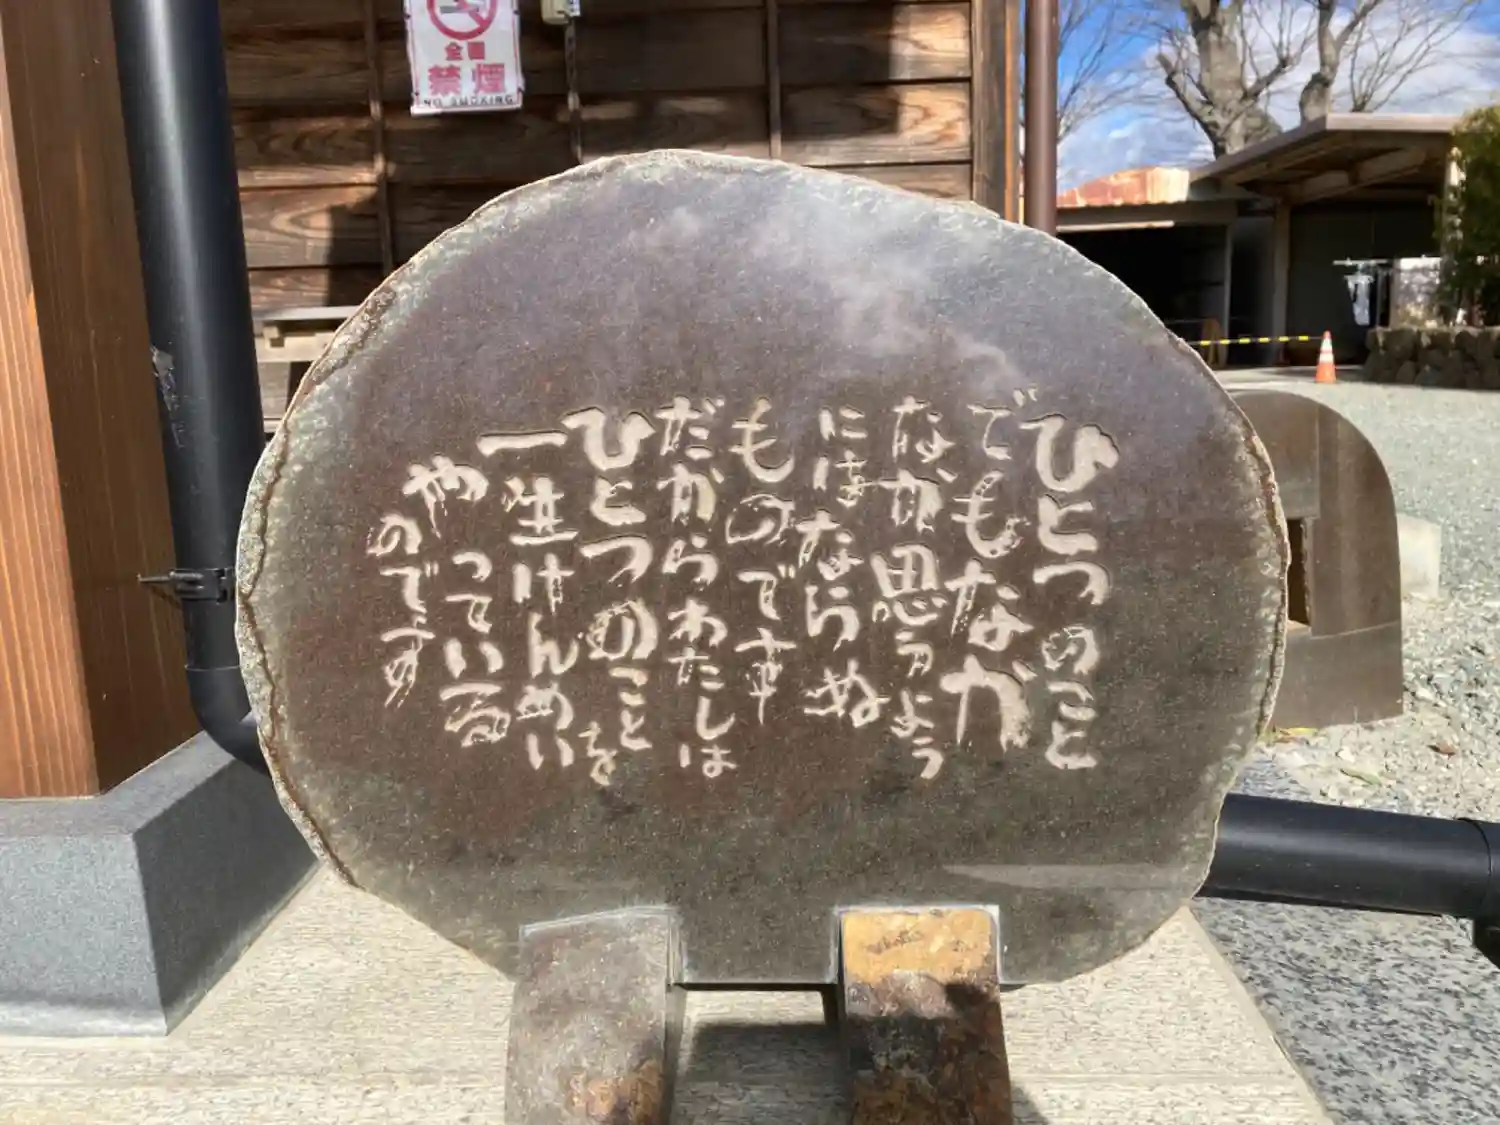 全面
禁煙
NO SMOKING
ひとつのこと
でもなか
なか思うよう
にはならぬ
ものです
だからわたしは
ひとつのことを
一生けんめい
やっている
のです